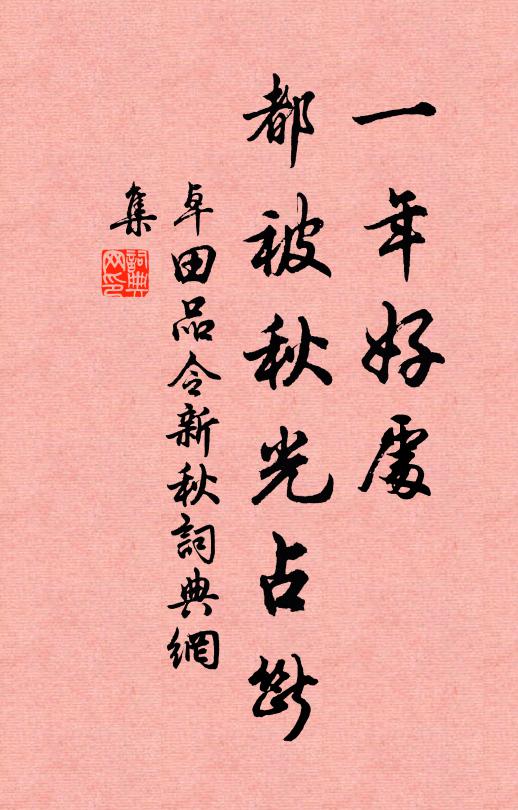 一年好處
都被秋光占斷
卓田品令新秋詞典網
集
詞典
网印